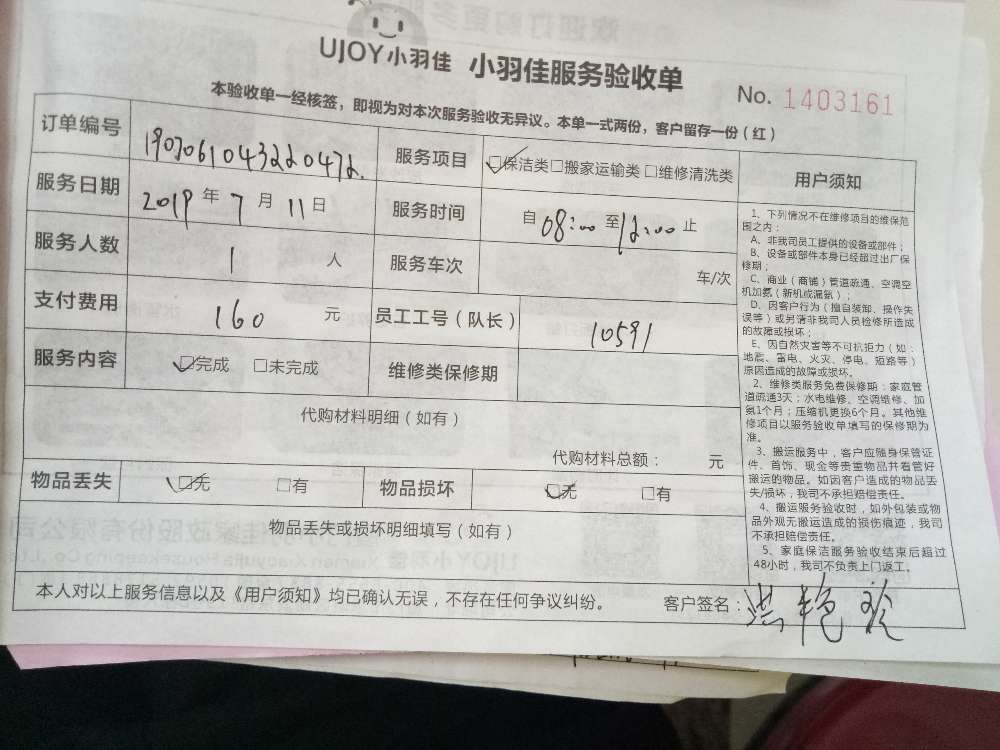 UJOY小羽佳 小羽佳服务验收单
No. 1403161
本验收单一经核签，即视为对本次服务验收无异议。本单一式两份，客户留存一份（红）
订单编号 1907061043220472. 服务项目 □保洁类□搬家运输类 □维修清洗类 用户须知
服务日期 2019 年 7 月 11 日 服务时间 自 08:00 至 12:00 止
服务人数 1 人 服务车次 车/次
支付费用 160 元 员工工号（队长） 10591
服务内容 □完成 □未完成 维修类保修期
代购材料明细（如有）
代购材料总额： 元
物品丢失 □无 □有 物品损坏 □无 □有
物品丢失或损坏明细填写（如有）
1、下列情况不在维修项目的维保范
围之内：
A、非我司员工提供的设备或部件；
B、设备或部件本身已经超过出厂保
修期；
C、商业（商铺）管道疏通、空调空
机加氨（新机或漏氨）；
D、因客户行为（擅自装卸、操作失
误等）或另请非我司人员检修所造成
的故障或损坏；
E、因自然灾害等不可抗拒力（如：
地震、雷电、火灾、停电、短路等）
原因造成的故障或损坏。
2、维修类服务免费保修期：家庭管
道疏通3天；水电维修、空调维修、加
氨1个月；压缩机更换6个月。其他维
修项目以服务验收单填写的保修期为
准。
3、搬运服务中，客户应随身保管证
件、首饰、现金等贵重物品并看管好
搬运的物品。如因客户造成的物品丢
失/损坏，我司不承担赔偿责任。
4、搬运服务验收时，如外包装或物
品外观无搬运造成的损伤痕迹，我司
不承担赔偿责任。
5、家庭保洁服务验收结束后超过
48小时，我司不负责上门返工。
本人对以上服务信息以及《用户须知》均已确认无误，不存在任何争议纠纷。 客户签名：洪艳玲